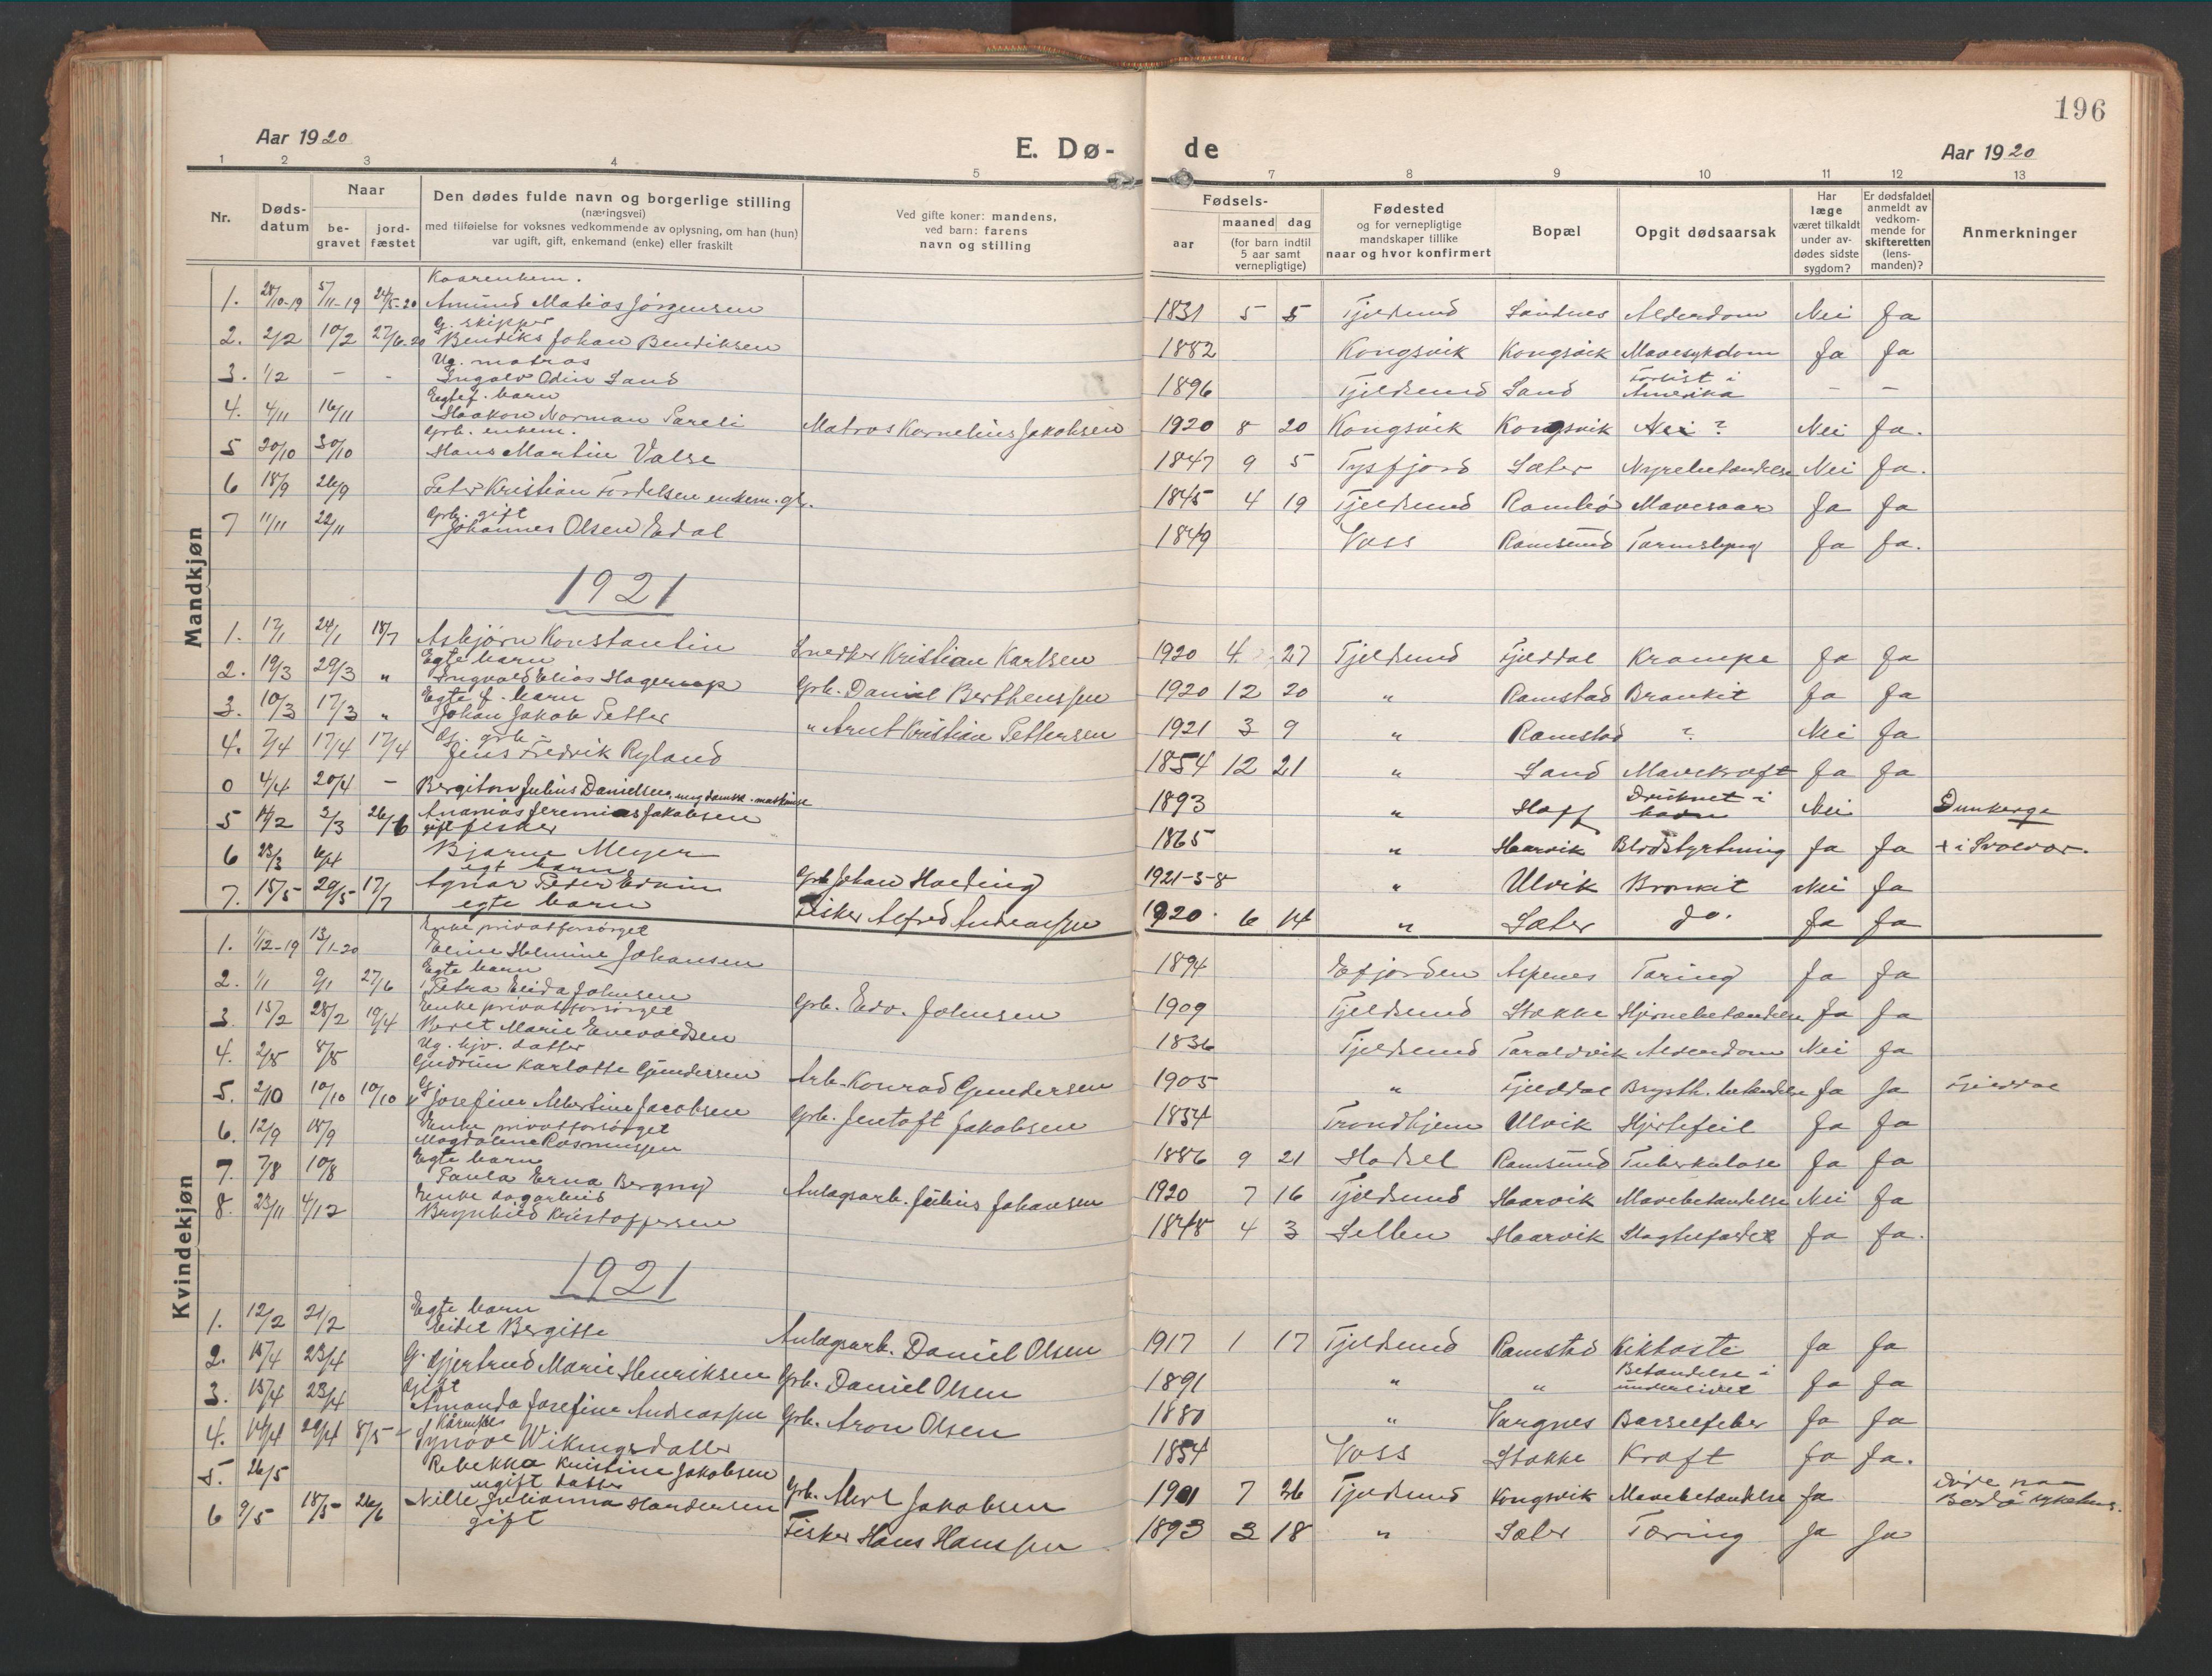 196
Aar 1920
E. Dø-
de
Aar 1920
1 2 3 4 5 7 8 9 10 11 12 13
Nr.
Døds-
datum
Naar
be-
gravet
jord-
fæstet
Den dødes fulde navn og borgerlige stilling
(næringsvei)
med tilføielse for voksnes vedkommende av oplysning, om han (hun)
var ugift, gift, enkemand (enke) eller fraskilt
Ved gifte koner: mandens,
ved barn: farens
navn og stilling
Fødsels-
aar
maaned dag
(for barn indtil
5 aar samt
vernepligtige)
Fødested
og for vernepligtige
mandskaper tillike
naar og hvor konfirmert
Bopæl
Opgit dødsaarsak
Har
læge
været tilkaldt
under av-
dødes sidste
sygdom?
Er dødsfaldet
anmeldt av
vedkom-
mende for
skifteretten
(lens-
manden)?
Anmerkninger
Mandkjøn
Kaarenkem.
1. 28/10-19 5/11-19 24/5-20 Amund Matias Jörgensen 1831 5 5 Tjeldsund Sandnes Alderdom Nei Ja
G. skipper
2. 2/2 10/2 27/6-20 Bendiks Johan Bendiksen 1882 Kongsvik Kongsvik Mavesykdom Ja Ja
Ug. matros
3. 1/2 - - Ingolv Odin Sand 1896 Tjeldsund Sand Forlist i Amerika - -
Egtef. barn
4. 4/11 16/11 Haakon Norman Sareli Matros Kornelius Jakobsen 1920 8 20 Kongsvik Kongsvik Nei ? Nei Ja.
Grb. enkem.
5 20/10 30/10 Hans Martin Valse 1847 9 5 Tysfjord Sæter Nyrebetændelse Nei Ja.
6 18/9 26/9 Peter Kristian Tordelsen enkem. gb. 1845 4 19 Tjeldsund Rambø Mavesaar Ja Ja
Grb. gift
7 11/11 22/11 Johannes Olsen Edal 1849 Voss Ramsund Tarmslyng Ja Ja.
1921
1. 17/1 24/1 18/7 Asbjörn Konstantin Snedker Kristian Karlsen 1920 4 27 Tjeldsund Fjelddal Krampe Ja Ja
Egte barn
2. 19/3 29/3 " Ingvald Elias Hagerup Grb. Daniel Berthenssen 1920 12 20 " Ramstad Bronkit Ja Ja
Egte f. barn
3. 10/3 17/3 " Johan Jakob Petter " Arnt Kristian Pettersen 1921 3 9 " Ramstad ? Nei Ja
Gj. grb.
4. 7/4 17/4 17/4 Jens Fredrik Ryland 1854 12 21 " Sand Mavekræft Ja Ja
0 4/4 20/4 - Bergiton Julius Danielsen, ung damsk. maskinist 1893 " Hoff Druknet i havn Nei Dunkerge
5 14/2 3/3 26/6 Ananias Jeremias Jakobsen 1865 " Haarvik Blodstyrtning Ja Ja + i Svolvær.
gift fisker
6 23/3 6/4 Bjarne Meyer Grb Johan Hoeding 1921-3-8 " Ulvik Bronkit Nei Ja
egt barn
7. 15/5 29/5 17/7 Agnar Peder Edvin Fisker Alfred Andreassen 1920. 6 14 " Sæter do. Ja Ja
egte barn
Kvindekjøn
Enke privatforsörget
1. 1/12-19 13/1-20 Eline Helmine Johansen 1894 Efjorden Aspenes Tæring Ja Ja
Egte barn
2. 1/1 9/1 27/6 Petra Elida Johnsen Grb. Edv. Johnsen 1909 Tjeldsund Stokke Hjernebetændelse Ja Ja
Enke privatforsörget
3. 15/2 28/2 19/4 Beret Marie Enevoldsen 1836 Tjeldsund Taraldvik Alderdom Nei Ja
Ug. hjv. datter
4. 2/8 8/8 Gudrun Karlotte Gundersen Arb. Konrad Gundersen 1905 " Fjelddal Brysth. betændelse Ja Ja Fjelddal
G.
5. 2/10 10/10 10/10 Josefine Albertine Jacobsen Grb. Jentoft Jakobsen 1834 Trondhjem Ulvik Hjertefeil Ja Ja
Enke privatforsörget
6. 12/9 18/9 Magdalene Rasmussen 1886 9 21 Hadsel Ramsund Tuberkulose Ja Ja
Egte barn
7. 7/8 10/8 Paula Erna Bergny Anlægsarb. Julius Johansen 1920 7 16 Tjeldsund Haarvik Mavebetændelse Nei Ja
Enke dagarbeid
8. 23/11 4/12 Brynhild Kristoffersen 1848 4 3 Selbu Haarvik Slagtilfælde Ja Ja.
1921
Egte barn
1. 12/2 21/2 Eidel Bergitte Anlægsarb. Daniel Olsen 1917 1 17 Tjeldsund Ramstad Kikhoste Ja Ja
2. 15/4 23/4 G. Gjertrud Marie Henriksen Grb. Daniel Olsen 1891 " " Betændelse i underlivet Ja Ja
Gift
3. 15/4 23/4 Amanda Josefine Andreassen Grb. Aron Olsen 1880 " Vargnes Barselfeber Ja Ja
4. 14/4 29/4 8/5 Synöve Wikingsdatter 1854 Voss Stokke Kræft Ja Ja.
5. 26/5 Rebekka Kristine Jakobsen Grb. Alert Jakobsen 1901 7 26 Tjeldsund Kongsvik Mavebetændelse Ja Döde paa Bodö sykehus.
ugift datter
6 9/5 18/5 26/6 Nille Julianna Handersen Fisker Hans Hanssen 1893 3 18 " Sæter Tæring Ja Ja
gift